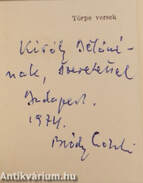 Törpe versek
Király Istváné-
nak, szeretettel
Budapest.
1974.
Bródy László
Antikvárium.hu